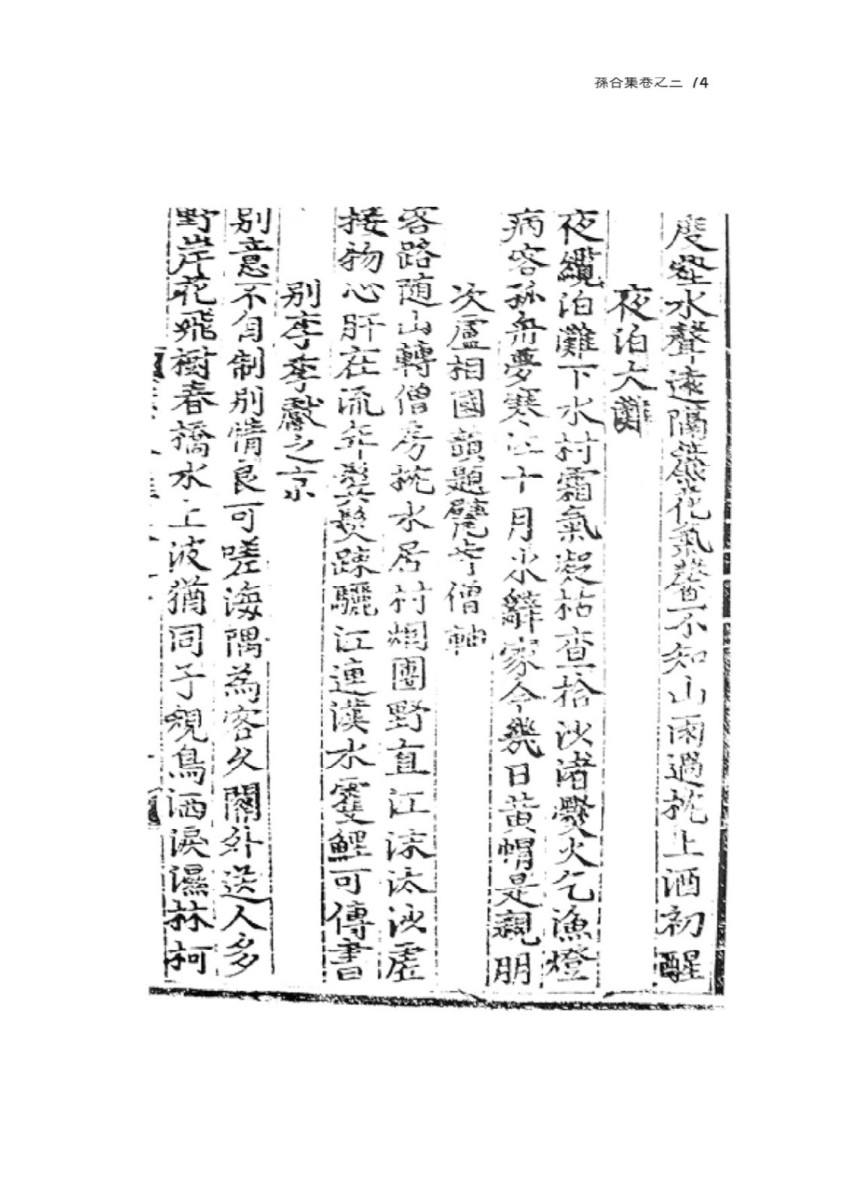 孫合集卷之三 74
度壑水聲遠隔簾花氣馨不知山雨過枕上酒初醒
夜泊大灘
夜纜泊灘下水村霜氣凝枯查拾沙渚爨火乞漁燈
病客孤舟夢寒江十月氷辭家今幾日黃帽是親朋
次盧相國韻題甓寺僧軸
客路随山轉僧房枕水居村烟團野直江沫汰沙虛
接物心肝在流年鬂髮踈驪江連漢水雙鯉可傳書
別李季獻之京
別意不自制別情良可嗟海隅為客久關外送人多
野岸花飛樹春橋水上波猶同子規鳥洒淚濕林柯